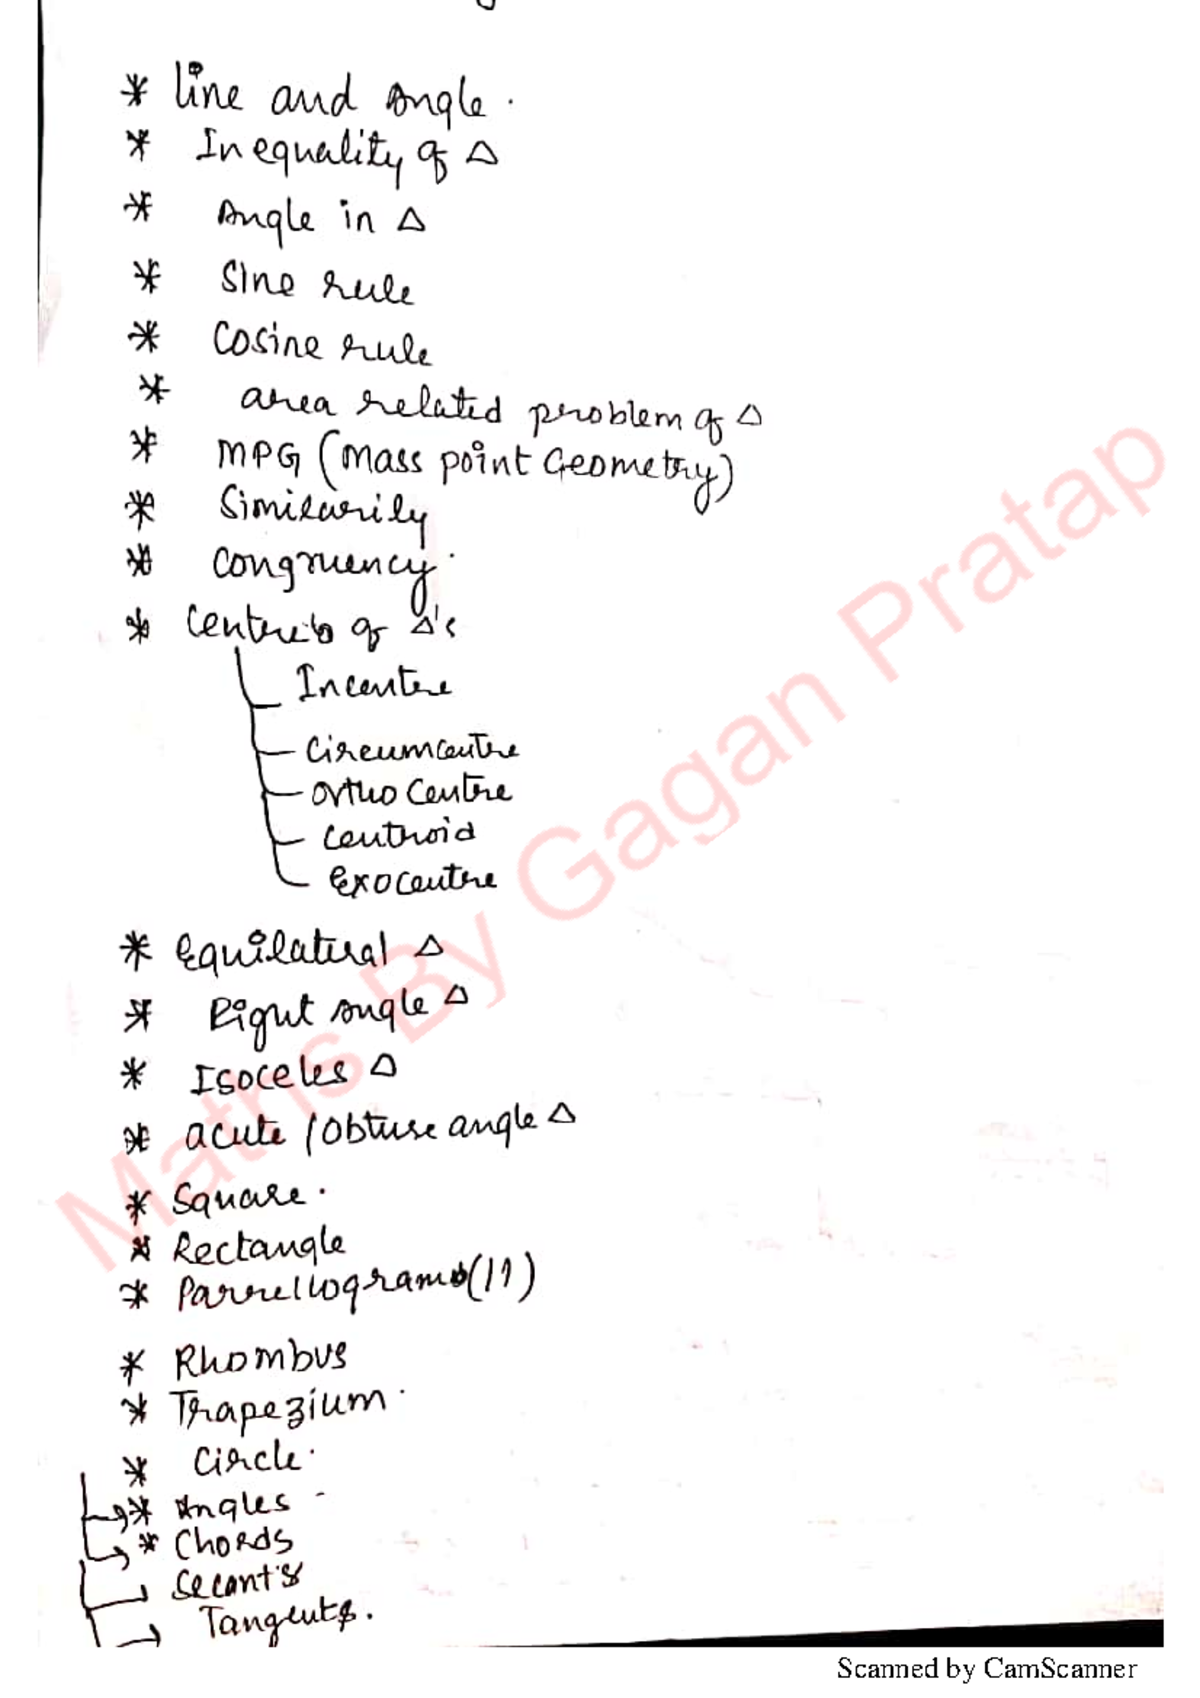 * Line and Angle.
* Inequality of Δ
* Angle in Δ
* Sine rule
* Cosine rule
* area related problem of Δ
* MPG (Mass point Geometry)
* Similarily
* Congruency.
* Centre's of Δ's
Incentre
Circumcentre
Ortho Centre
Centroid
Exocentre
* Equilateral Δ
* Right Angle Δ
* Isoceles Δ
* acute / Obtuse angle Δ
* Square.
* Rectangle
* Parrellogram (11)
* Rhombus
* Trapezium.
* Circle.
* Angles -
* Chords
Secant's
Tangents.
Maths By Gagan Pratap
Scanned by CamScanner